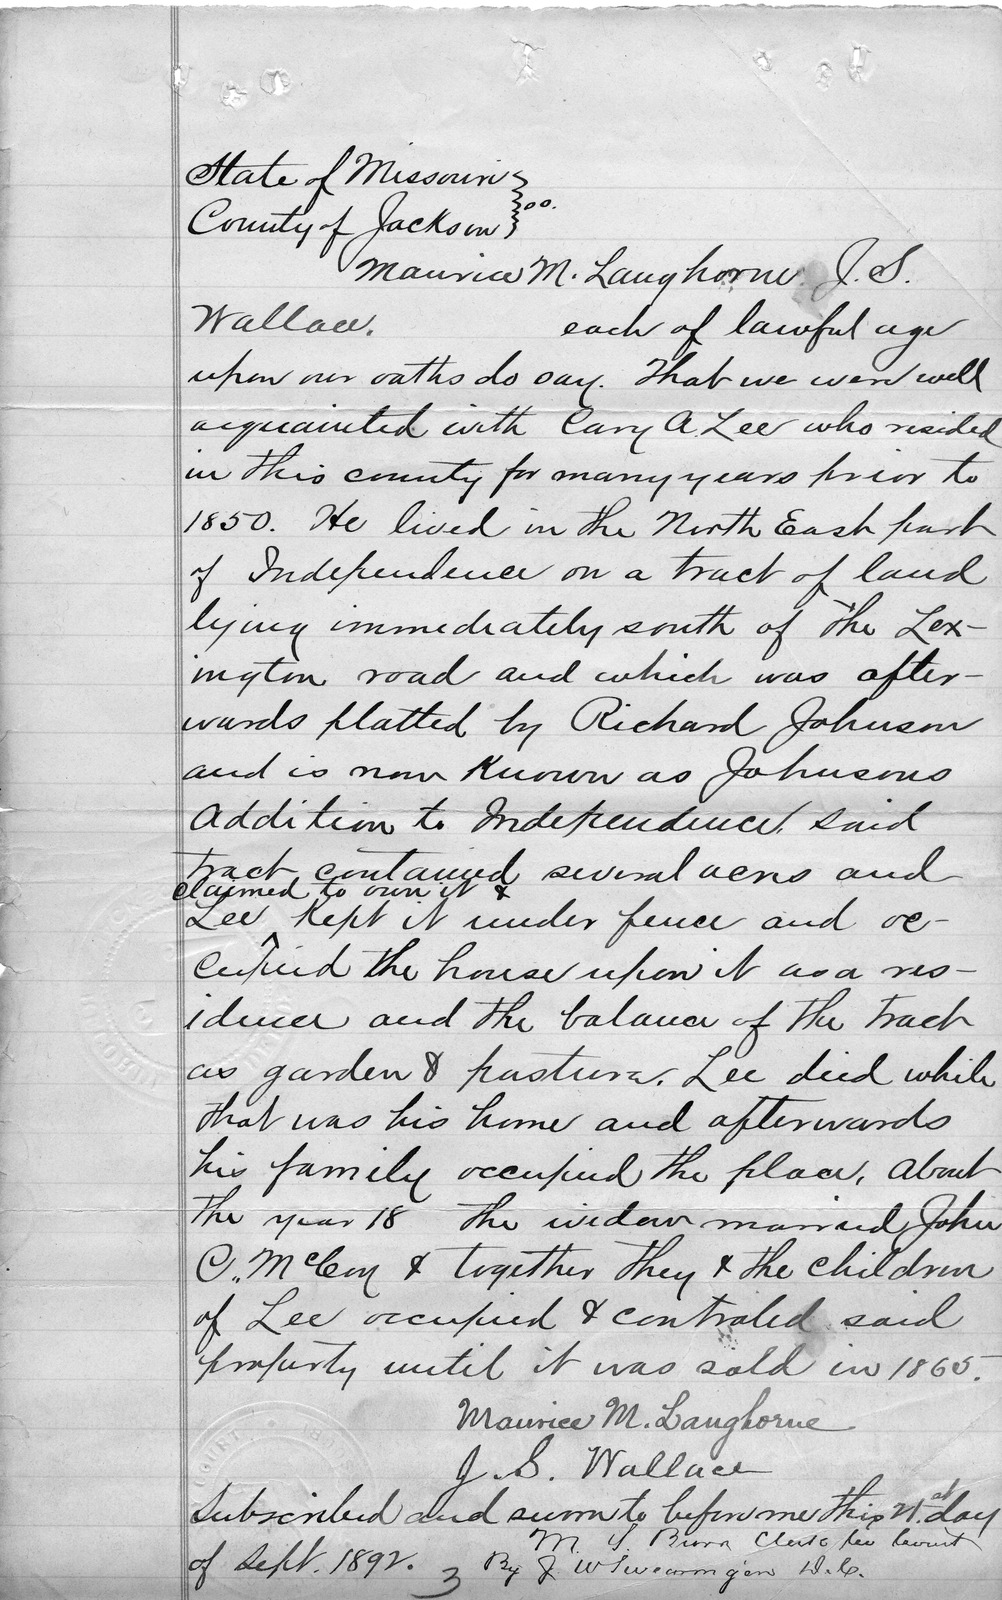 State of Missouri }
County of Jackson } ss.
Maurice M. Langhorne J. S.
Wallace. each of lawful age
upon our oaths do say. That we were well
acquainted with Cary A. Lee who resided
in this county for many years prior to
1850. He lived in the North East part
of Independence on a tract of land
lying immediately south of the Lex-
ington road and which was after-
wards platted by Richard Johnson
and is now known as Johnsons
Addition to Independence, said
tract contained several acres and
claimed to own it &
Lee ^ kept it under fence and oc-
cupied the house upon it as a res-
idence and the balance of the tract
as garden & pasture. Lee died while
that was his home and afterwards
his family occupied the place, about
the year 18 the widow married John
C. McCoy & together they & the children
of Lee occupied & controled said
property until it was sold in 1865.
Maurice M. Langhorne
J. S. Wallace
Subscribed and sworn to before me this 21st day
of Sept. 1892. M. S. Clerk Court
3 By J W Swearingen D.C.